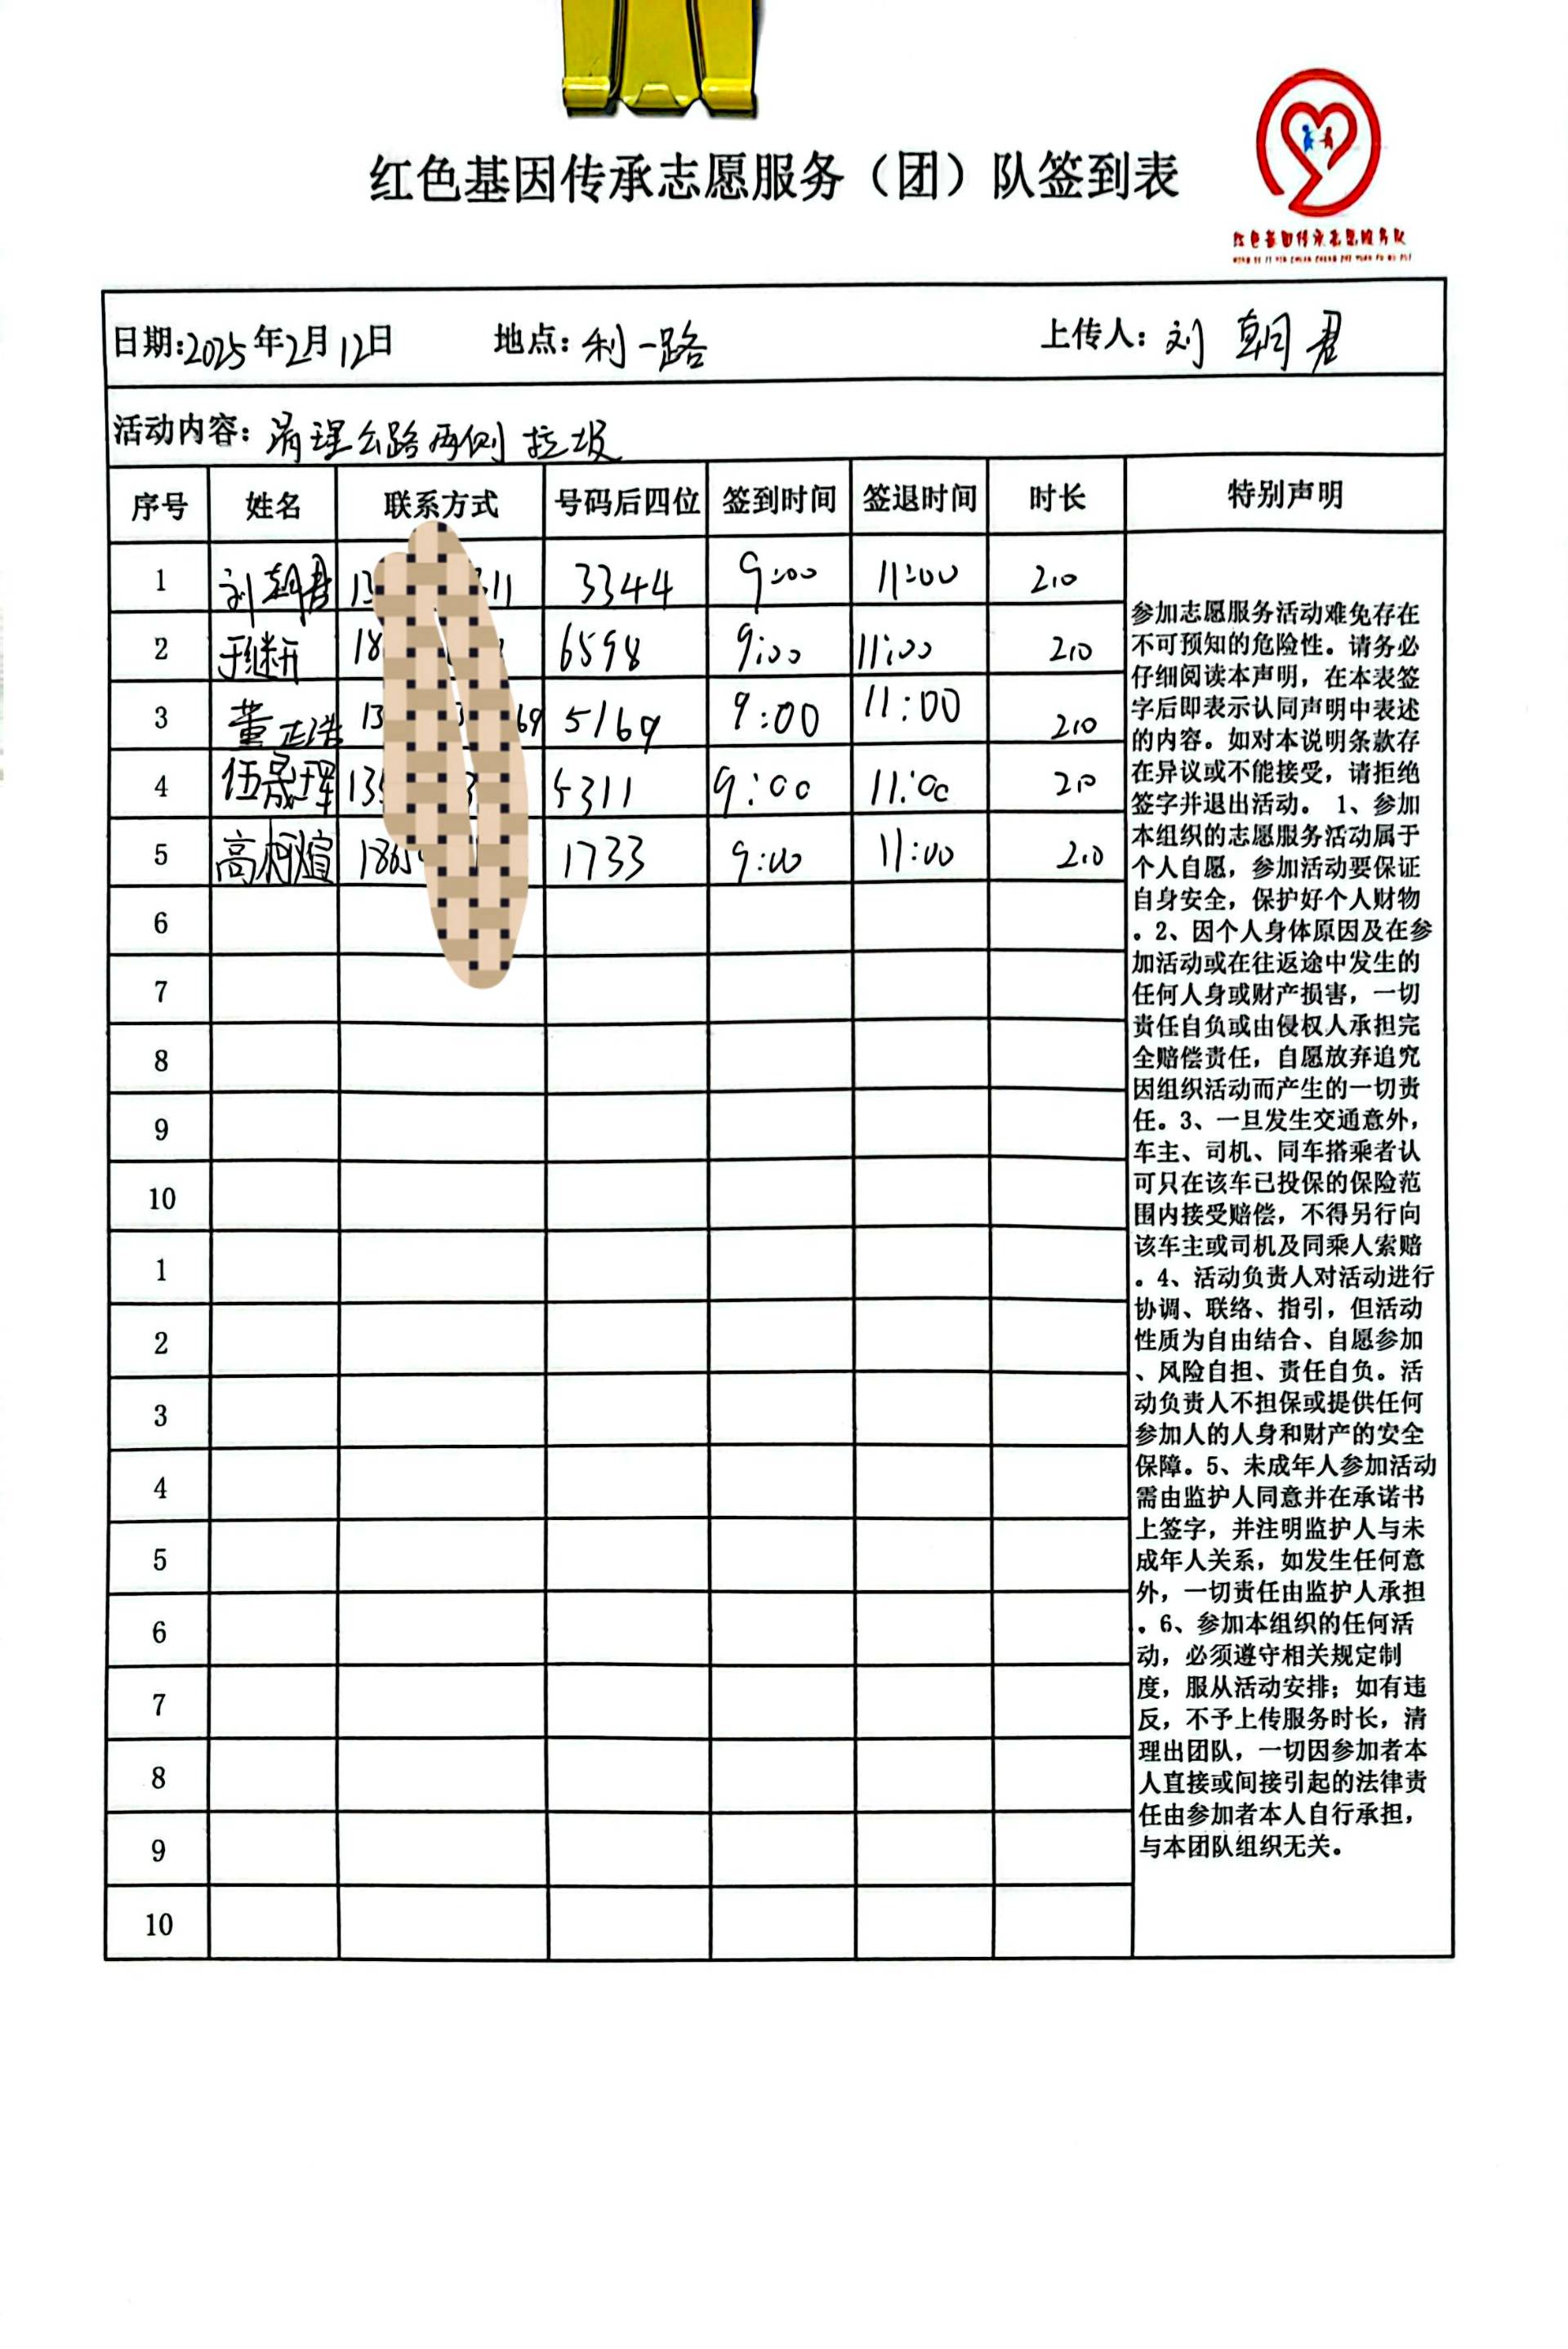 红色基因传承志愿服务（团）队签到表
红色基因传承志愿服务队
HONG SE JI YIN CHUAN CHENG ZHI YUAN FU WU DUI
日期:2025年2月12日 地点:利一路 上传人:刘朝君
活动内容:清理公路两侧垃圾
序号 姓名 联系方式 号码后四位 签到时间 签退时间 时长 特别声明
1 刘朝君 13 311 3344 9:00 11:00 2.0
2 18 6598 9:00 11:00 2.0
3 董正浩 13 69 5169 9:00 11:00 2.0
4 伍晟珲 13 5311 9:00 11:00 2.0
5 高柯煊 186 1733 9:00 11:00 2.0
6
7
8
9
10
1
2
3
4
5
6
7
8
9
10
参加志愿服务活动难免存在
不可预知的危险性。请务必
仔细阅读本声明，在本表签
字后即表示认同声明中表述
的内容。如对本说明条款存
在异议或不能接受，请拒绝
签字并退出活动。1、参加
本组织的志愿服务活动属于
个人自愿，参加活动要保证
自身安全，保护好个人财物
。2、因个人身体原因及在参
加活动或在往返途中发生的
任何人身或财产损害，一切
责任自负或由侵权人承担完
全赔偿责任，自愿放弃追究
因组织活动而产生的一切责
任。3、一旦发生交通意外，
车主、司机、同车搭乘者认
可只在该车已投保的保险范
围内接受赔偿，不得另行向
该车主或司机及同乘人索赔
。4、活动负责人对活动进行
协调、联络、指引，但活动
性质为自由结合、自愿参加
、风险自担、责任自负。活
动负责人不担保或提供任何
参加人的人身和财产的安全
保障。5、未成年人参加活动
需由监护人同意并在承诺书
上签字，并注明监护人与未
成年人关系，如发生任何意
外，一切责任由监护人承担
。6、参加本组织的任何活
动，必须遵守相关规定制
度，服从活动安排；如有违
反，不予上传服务时长，清
理出团队，一切因参加者本
人直接或间接引起的法律责
任由参加者本人自行承担，
与本团队组织无关。